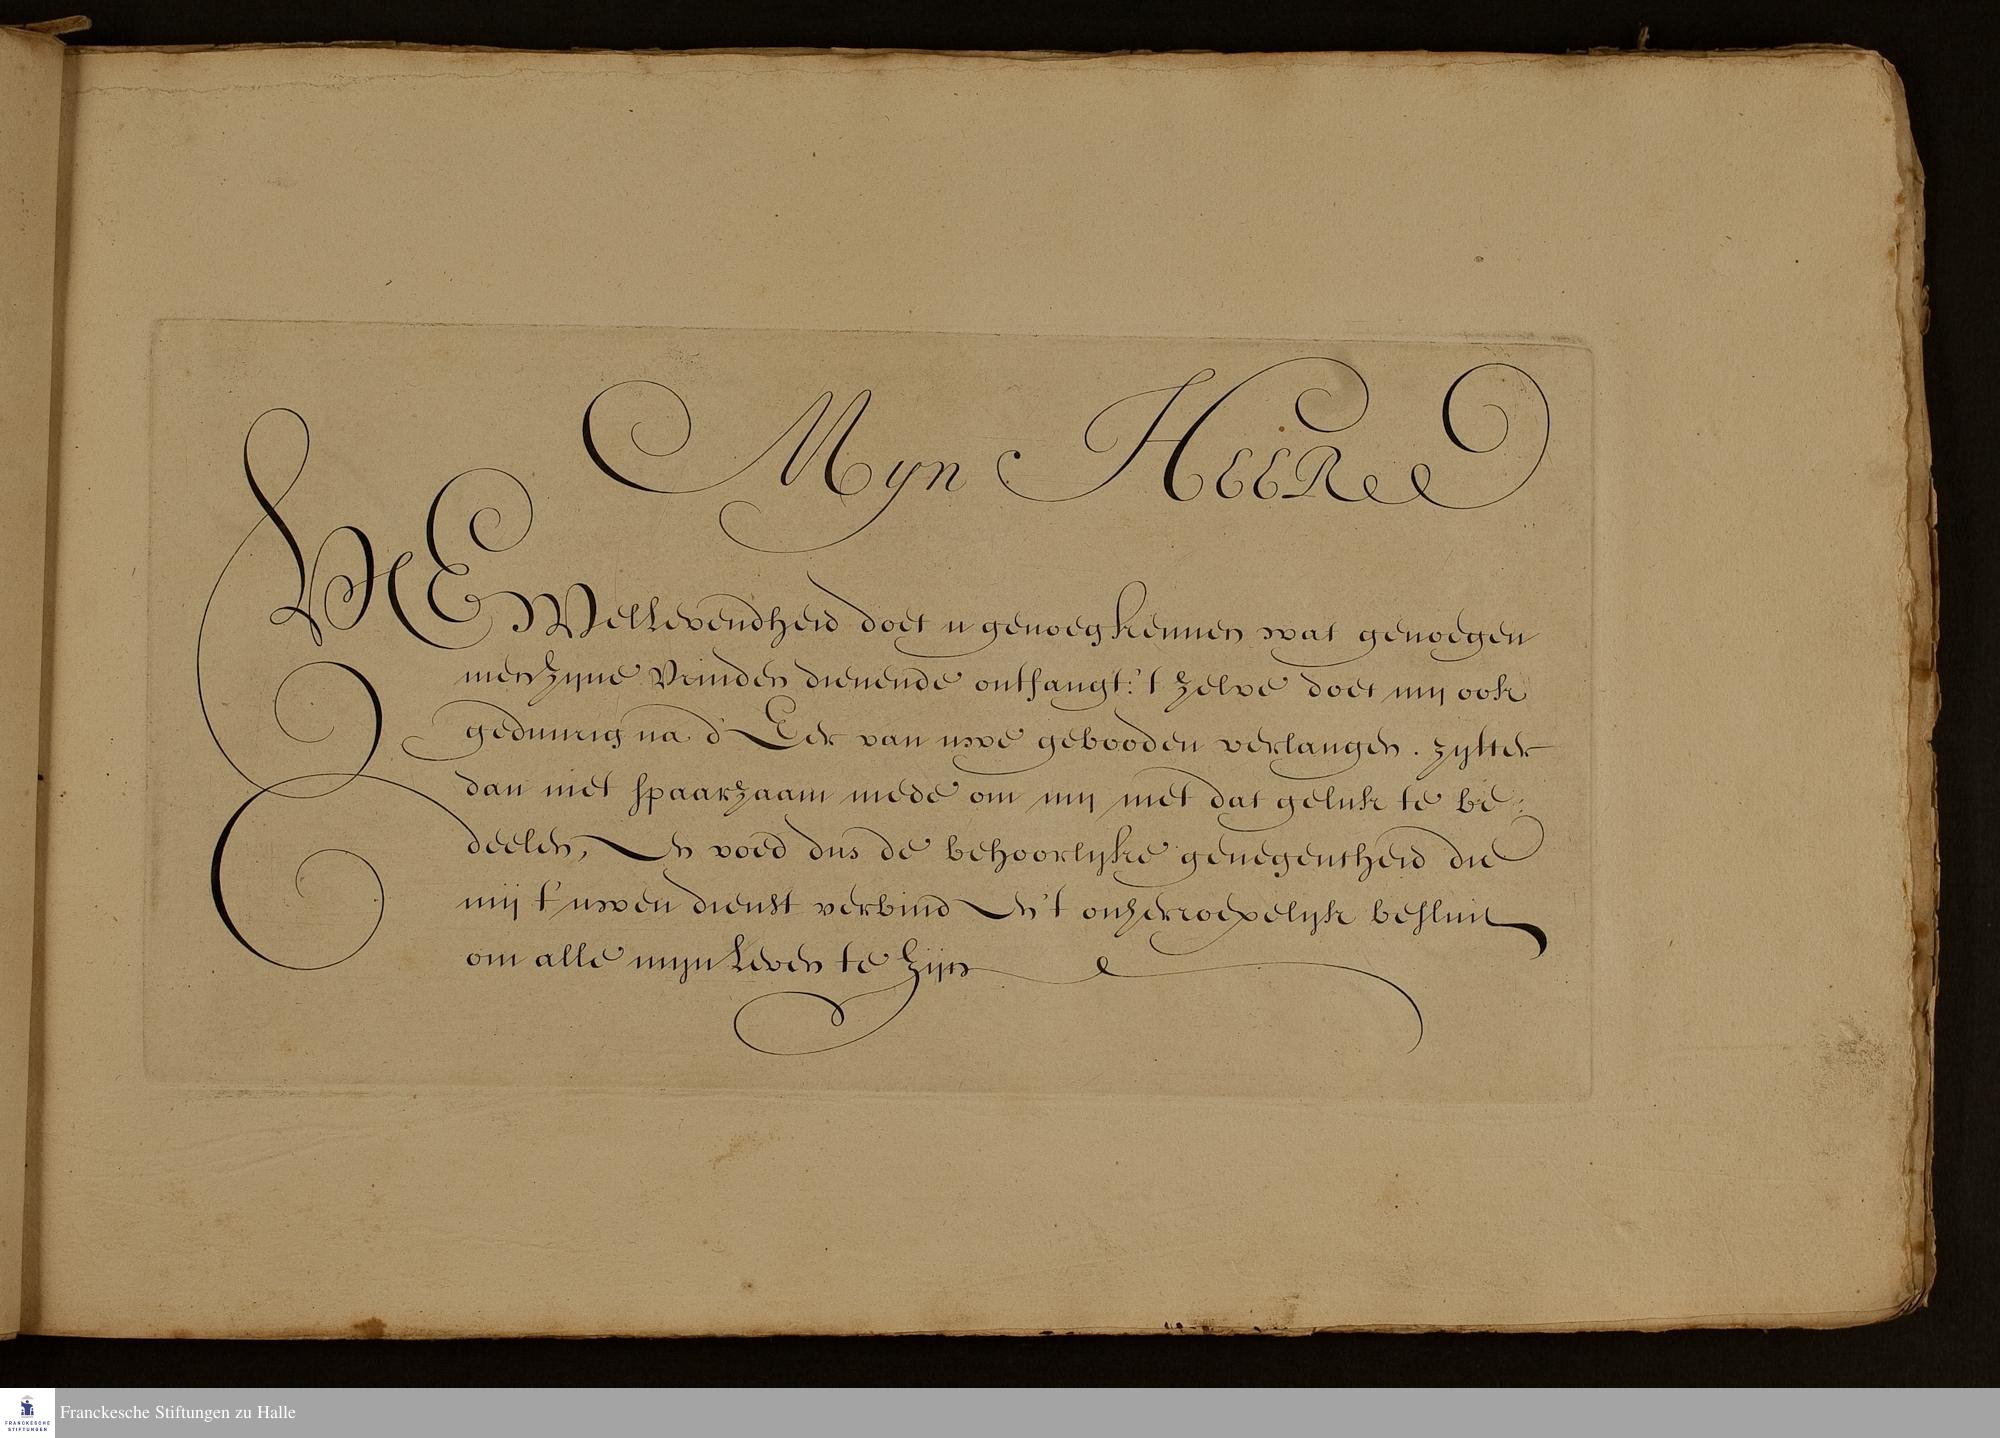 Myn HEERe
UE Wellevendheid doet u genoeg kennen wat genoegen
men zyne Vrinden dienende ontfangt: 't zelve doet mij ook
geduurig na d' Eer van uwe gebooden verlangen. zyt'er
dan niet spaarzaam mede om mij met dat geluk te be:
deelen, En voed dus de behoorlyke genegentheid die
mij t' uwen dienst verbind En 't onherroepelijk besluit
om alle mijn Leven te Zijn
Franckesche Stiftungen zu Halle
FRANCKESCHE
STIFTUNGEN